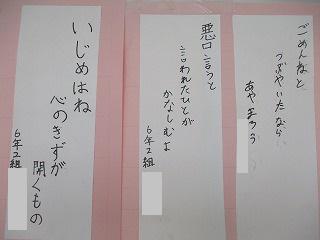 ごめんねと
つぶやいたなら
あやまろう
悪口言うと
言われたひとが
かなしむよ
6年2組
いじめはね
心のきずが
開くもの
6年2組